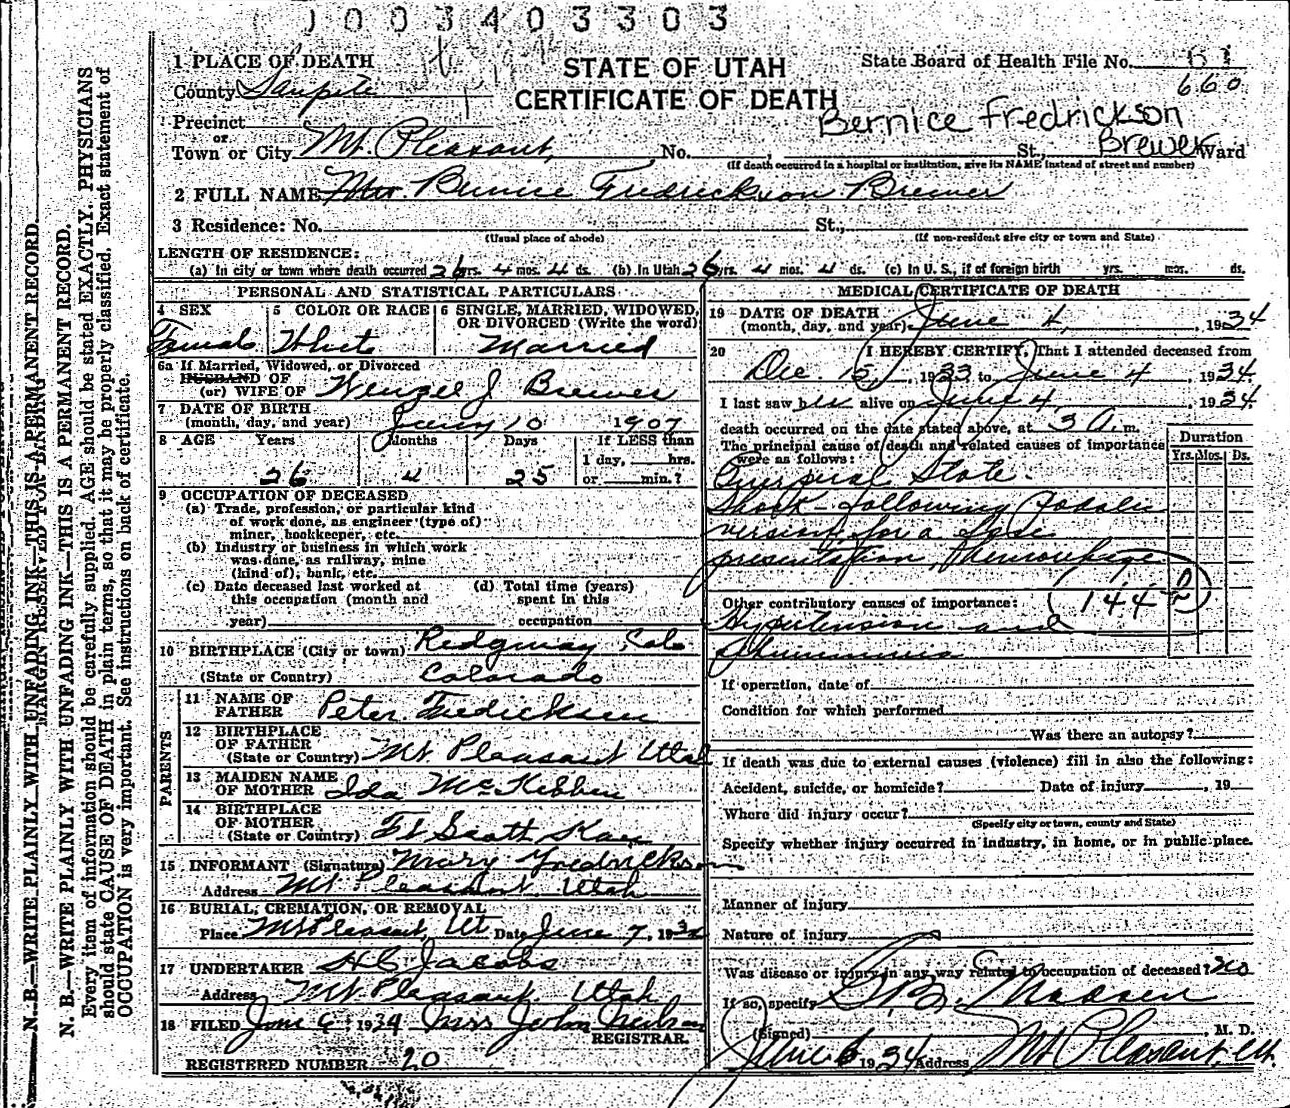 1003403303
1 PLACE OF DEATH
STATE OF UTAH
State Board of Health File No. 81
660
County Sanpete
CERTIFICATE OF DEATH
Bernice Fredrickson
Brewer
Precinct
or
Town or City Mt. Pleasant, No. St., Ward
(If death occurred in a hospital or institution, give its NAME instead of street and number)
2 FULL NAME Mrs. Bernice Fredrickson Brewer
3 Residence: No. St.,
(Usual place of abode) (If non-resident give city or town and State)
LENGTH OF RESIDENCE:
(a) In city or town where death occurred 26 yrs. 4 mos. 4 ds. (b) In Utah 26 yrs. 4 mos. 4 ds. (c) In U. S., if of foreign birth yrs. mos. ds.
PERSONAL AND STATISTICAL PARTICULARS
4 SEX 5 COLOR OR RACE 6 SINGLE, MARRIED, WIDOWED,
OR DIVORCED (Write the word)
Female White Married
6a If Married, Widowed, or Divorced
HUSBAND OF
(or) WIFE OF Wenzel J Brewer
7 DATE OF BIRTH
(month, day, and year) 10 1907
8 AGE Years Months Days If LESS than
1 day, hrs.
26 4 25 or min.?
9 OCCUPATION OF DECEASED
(a) Trade, profession, or particular kind
of work done, as engineer (type of)
miner, bookkeeper, etc.
(b) Industry or business in which work
was done, as railway, mine
(kind of), bank, etc.
(c) Date deceased last worked at (d) Total time (years)
this occupation (month and spent in this
year) occupation
10 BIRTHPLACE (City or town) Ridgway, Colo
(State or Country) Colorado
PARENTS
11 NAME OF
FATHER Peter Fredicksen
12 BIRTHPLACE
OF FATHER
(State or Country) Mt Pleasant Utah
13 MAIDEN NAME
OF MOTHER Ida McKibben
14 BIRTHPLACE
OF MOTHER
(State or Country) Ft Scott Kan
15 INFORMANT (Signature) Mary Fredrickson
Address Mt Pleasant Utah
16 BURIAL, CREMATION, OR REMOVAL
Place Mt Pleasant, Ut Date June 7, 1934
17 UNDERTAKER H C Jacobs
Address Mt. Pleasant. Utah
18 FILED June 6 1934 John
REGISTRAR.
REGISTERED NUMBER 20
MEDICAL CERTIFICATE OF DEATH
19 DATE OF DEATH
(month, day, and year) June 4, 1934
20 I HEREBY CERTIFY, That I attended deceased from
Dec. 15, 1933 to June 4, 1934
I last saw her alive on June 4, 1934
death occurred on the date stated above, at 3 A. m.
The principal cause of death and related causes of importance
were as follows:
Duration
Yrs. Mos. Ds.
Puerperal State.
Shock - following Podalic
version for a face
presentation, Hemorrhage
144
Other contributory causes of importance:
Hypertension and
Albuminuria
If operation, date of
Condition for which performed
Was there an autopsy?
If death was due to external causes (violence) fill in also the following:
Accident, suicide, or homicide? Date of injury , 19
Where did injury occur?
(Specify city or town, county and State)
Specify whether injury occurred in industry, in home, or in public place.
Manner of injury
Nature of injury
Was disease or injury in any way related to occupation of deceased? no
If so, specify
(Signed) Madsen, M. D.
June 6 1934 Address Mt Pleasant, Ut.
N. B.—WRITE PLAINLY WITH UNFADING INK—THIS IS A PERMANENT RECORD.
N. B.—WRITE PLAINLY WITH UNFADING INK—THIS IS A PERMANENT RECORD.
Every item of information should be carefully supplied. AGE should be stated EXACTLY. PHYSICIANS
should state CAUSE OF DEATH in plain terms, so that it may be properly classified. Exact statement of
OCCUPATION is very important. See instructions on back of certificate.